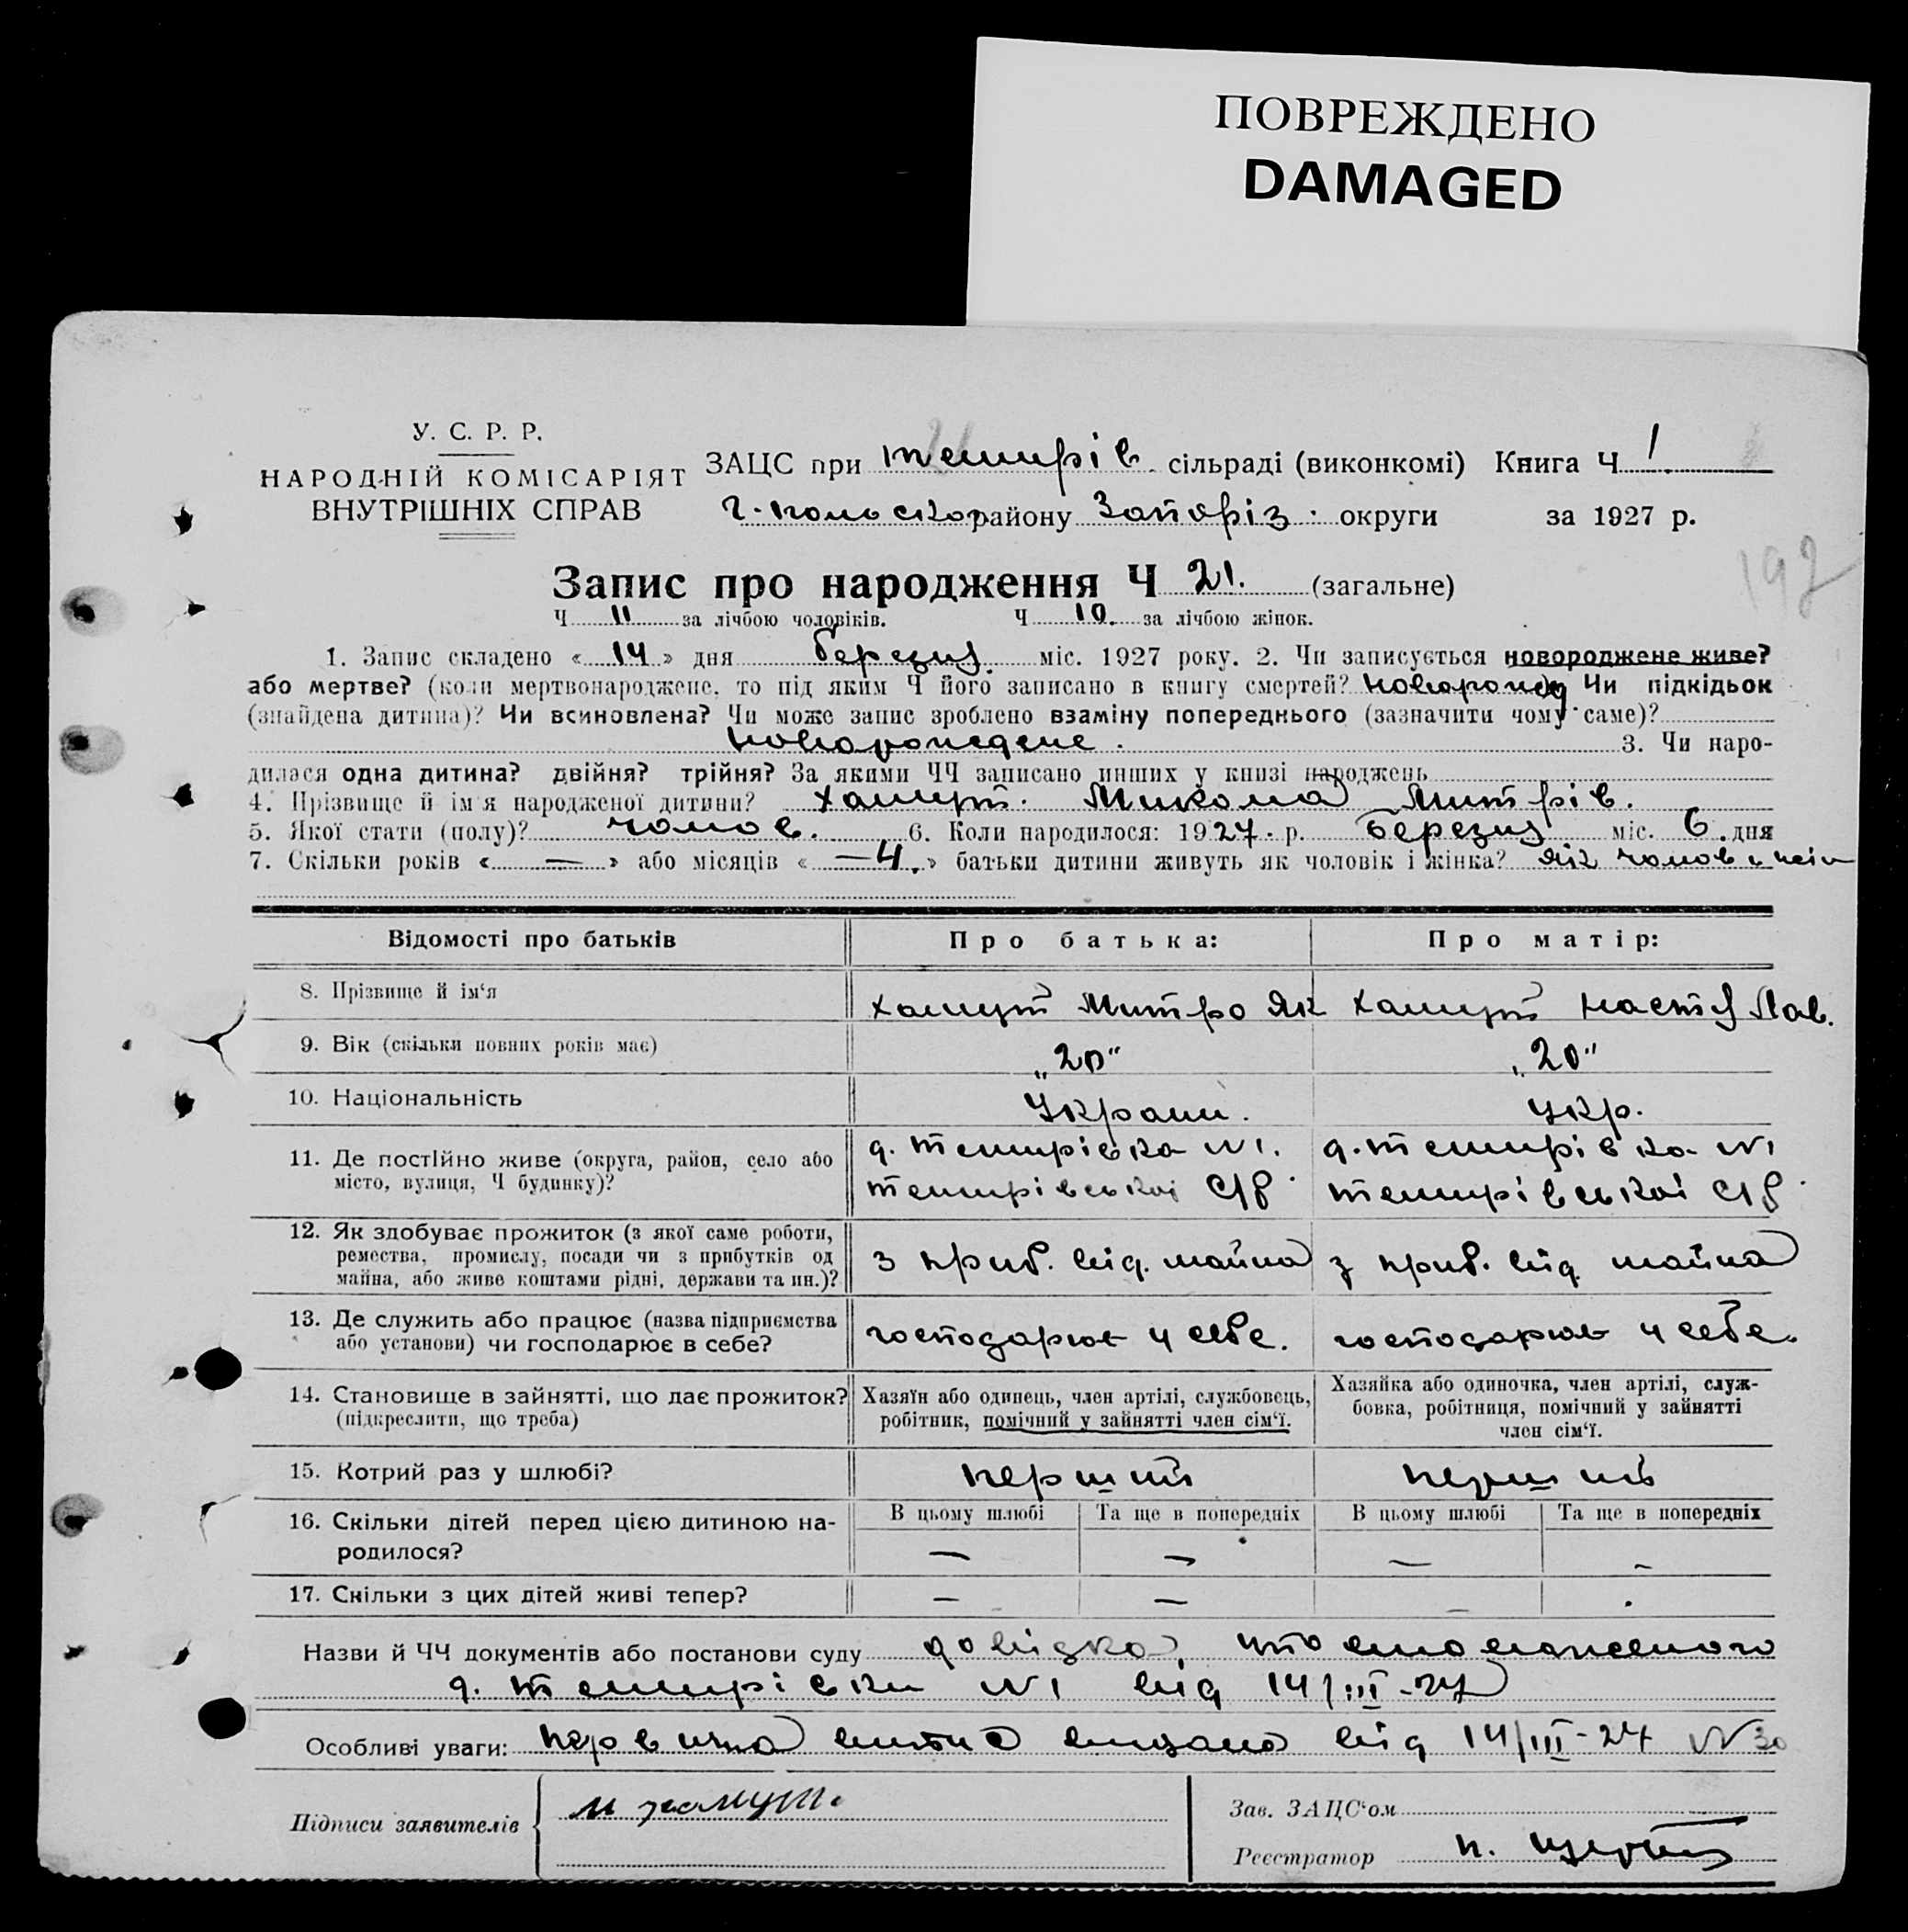 ПОВРЕЖДЕНО
DAMAGED
У. С. Р. Р.
НАРОДНІЙ КОМІСАРІЯТ
ВНУТРІШНІХ СПРАВ
ЗАЦС при темирів. сільраді (виконкомі) Книга Ч 1.
району Запоріз. округи за 1927 р.
192
Запис про народження Ч 21. (загальне)
Ч 11 за лічбою чоловіків. Ч 10. за лічбою жінок.
1. Запис складено « 14 » дня березня. міс. 1927 року. 2. Чи записується новороджене живе?
або мертве? (коли мертвонароджене, то під яким Ч його записано в книгу смертей? Чи підкідьок
(знайдена дитина)? Чи всиновлена? Чи може запис зроблено взаміну попереднього (зазначити чому саме)?
новоронедене. 3. Чи наро-
дилася одна дитина? двійня? трійня? За якими ЧЧ записано инших у книзі народжень
4. Прізвище й ім'я народженої дитини? Хамут. Микола Митрів.
5. Якої стати (полу)? чолов. 6. Коли народилося: 1927. р. Березня міс. 6. дня
7. Скільки років « — » або місяців « —4. » батьки дитини живуть як чоловік і жінка? як чолов и жін
Відомості про батьків Про батька: Про матір:
8. Прізвище й ім'я Хамут Митро Як Хамут Настя Пав.
9. Вік (скільки повних років має) „20" „20"
10. Національність Украин. Укр.
11. Де постійно живе (округа, район, село або місто, вулиця, Ч будинку)?
д. темирівка N1. д. темирівка N1
темирівської С/р. темирівської С/р.
12. Як здобуває прожиток (з якої саме роботи, ремества, промислу, посади чи з прибутків од майна, або живе коштами рідні, держави та ин.)?
з приб. від. майна з приб. від майна
13. Де служить або працює (назва підприємства або установи) чи господарює в себе?
господарює у себе. господарює у себе.
14. Становище в зайнятті, що дає прожиток? (підкреслити, що треба)
Хазяїн або одинець, член артілі, службовець, робітник, помічний у зайнятті член сім'ї.
Хазяйка або одиночка, член артілі, служ-
бовка, робітниця, помічний у зайнятті
член сім'ї.
15. Котрий раз у шлюбі? перший перший
16. Скільки дітей перед цією дитиною на-
родилося?
В цьому шлюбі Та ще в попередніх В цьому шлюбі Та ще в попередніх
— — — —
17. Скільки з цих дітей живі тепер? — — —
Назви й ЧЧ документів або постанови суду довідка,
д. темирівки N1 від 14/III-27
Особливі уваги: видано від 14/III-27 N30
Підписи заявителів М Хамут.
Зав. ЗАЦС'ом
Реєстратор